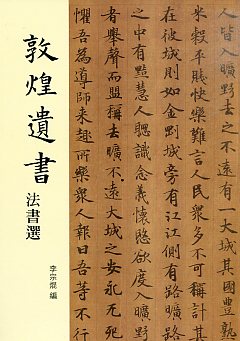 敦煌遺書
法書選
李宗焜 編
人皆入曠野之中不遠有一大城豐熟
米穀平賤快樂難言人民眾多不可稱計其
在彼城則如金剛城旁有江江側有路曠路
之中有黠慧人聰識念義懷愍欲度入曠野
者舉聲而盟稱去曠不遠大城之安永无死
懼吾為導師來趣所樂眾人報曰吾等不行